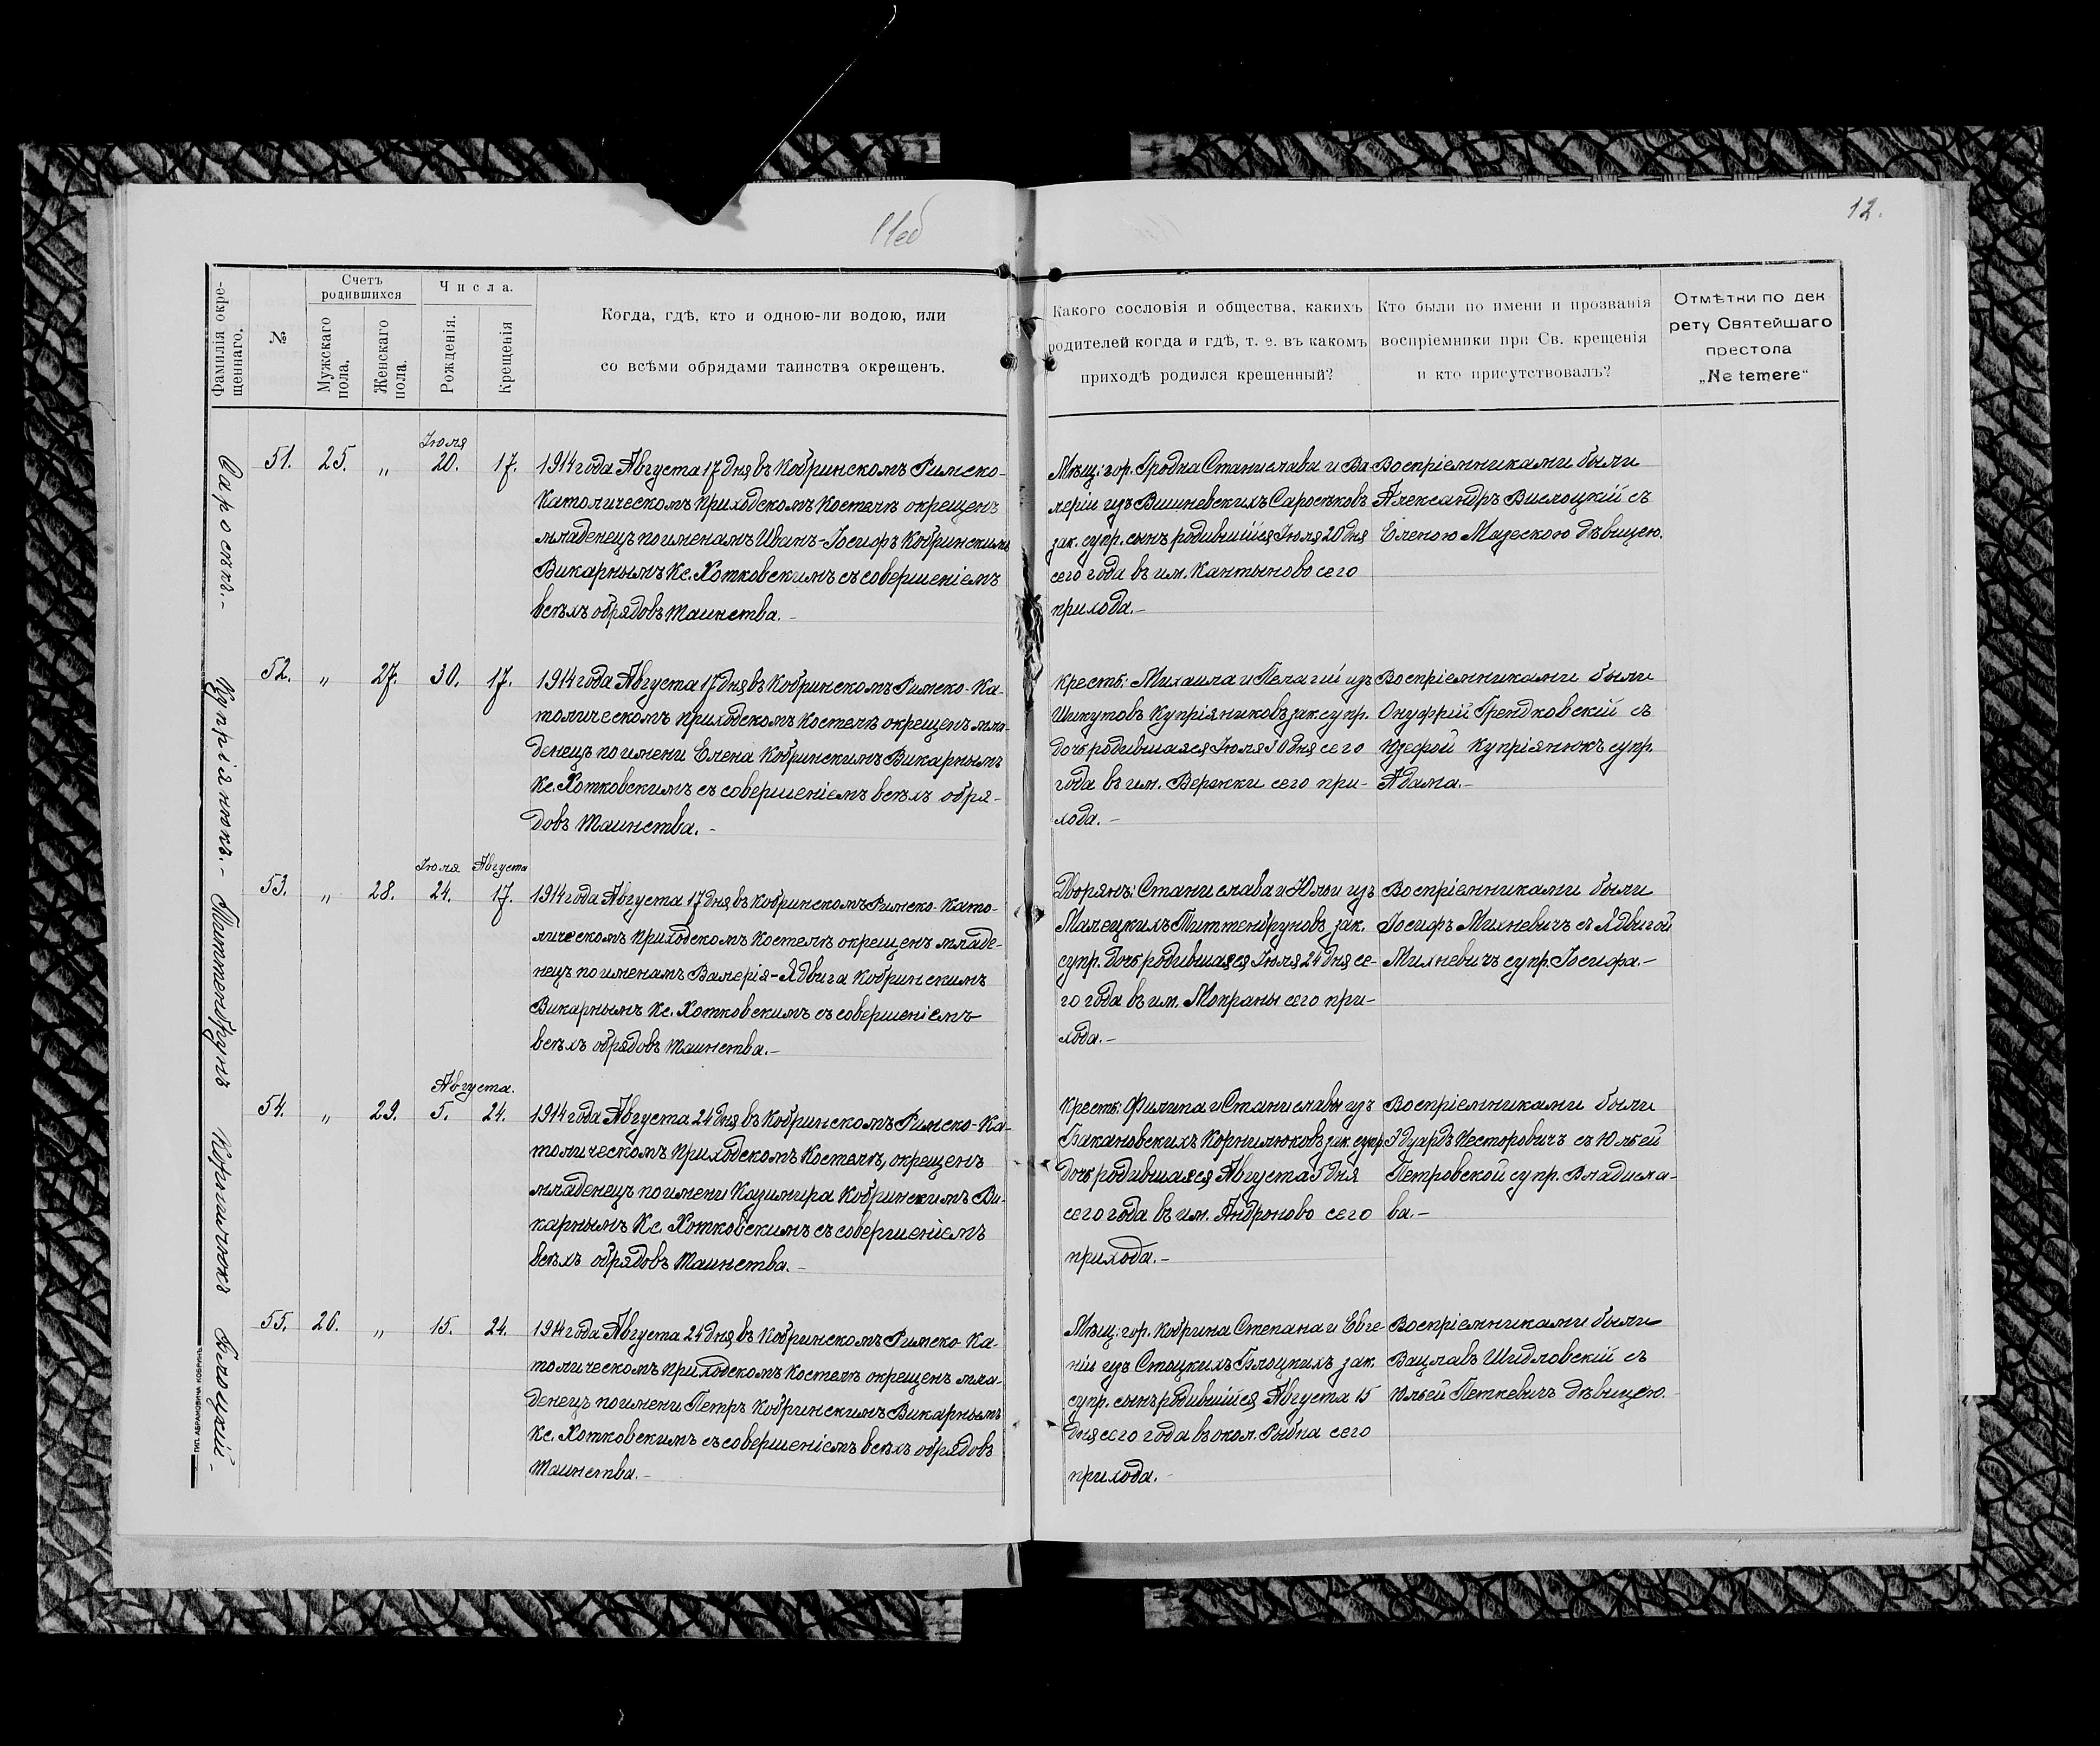 11об
12.
Фамилія окре-
щеннаго.
№
Счетъ
родившихся
Мужскаго
пола.
Женскаго
пола.
Числа.
Рожденія.
Крещенія
Когда, гдѣ, кто и одною-ли водою, или
со всѣми обрядами таинства окрещенъ.
Какого сословія и общества, какихъ
родителей когда и гдѣ, т. е. въ какомъ
приходѣ родился крещенный?
Кто были по имени и прозванія
воспріемники при Св. крещенія
и кто присутствовалъ?
Отмѣтки по дек
рету Святейшаго
престола
„Ne temere“
Саросѣкъ.-
Іюля
51. 25. „ 20. 17.
1914 года Августа 17 дня въ Кобринскомъ Римско-
Католическомъ приходскомъ Костелѣ окрещенъ
младенецъ по именамъ Иванъ-Іосифъ Кобринскимъ
Викарнымъ Кс. Хотковскимъ съ совершеніемъ
всѣхъ обрядовъ таинства.-
Мѣщ: гор. Гродна Станислава и Ва
леріи изъ Вишневскихъ Саросѣковъ
зак. супр. сынъ родившійся Іюля 20 дня
сего года въ им. Кантыново сего
прихода.-
Воспріемниками были
Александръ Вислоцкій съ
Еленою Маzескою дѣвицею.
Купріянюкъ.-
52. „ 27. 30. 17.
1914 года Августа 17 дня въ Кобринскомъ Римско-Ка-
толическомъ приходскомъ Костелѣ окрещенъ мла-
денецъ по имени Елена Кобринскимъ Викарнымъ
Кс. Хотковскимъ съ совершеніемъ всѣхъ обря-
довъ таинства.-
Крестъ: Михаила и Пелагіи изъ
Шикутовъ Купріяниковъ зак. супр.
дочь родившаяся Іюля 30 дня сего
года въ им. Вережки сего при-
хода.-
Воспріемниками были
Онуфрій Грендковскій съ
Юзефой Купріянюкъ супр.
Адама.-
Титтенбрунъ
Іюля Августа
53. „ 28. 24. 17.
1914 года Августа 17 дня въ Кобринскомъ Римско-Като-
лическомъ приходскомъ Костелѣ окрещенъ младе-
нецъ по именамъ Валерія-Ядвига Кобринскимъ
Викарнымъ Кс. Хотковскимъ съ совершеніемъ
всѣхъ обрядовъ таинства.-
Дворянъ: Станислава и Юліи изъ
Малецкихъ Титтенбруновъ зак.
супр. дочь родившаяся Іюля 24 дня се-
го года въ им. Мокраны сего при-
хода.-
Воспріемниками были
Іосифъ Михневичъ съ Ядвигой
Михневичъ супр. Іосифа.-
Корнилюкъ
Августа.
54. „ 29. 5. 24.
1914 года Августа 24 дня въ Кобринскомъ Римско-Ка-
толическомъ приходскомъ Костелѣ, окрещенъ
младенецъ по имени Казимира Кобринскимъ Ви-
карнымъ Кс. Хотковскимъ съ совершеніемъ
всѣхъ обрядовъ таинства.-
Крестъ: Филипа и Станиславы изъ
Бакановскихъ Корнилюковъ зак. супр.
дочь родившаяся Августа 5 дня
сего года въ им. Андроново сего
прихода.-
Воспріемниками были
Эдуардъ Несторовичъ съ Юліей
Петровской супр. Владисла-
ва.-
Блоцкій.-
55. 26. „ 15. 24.
1914 года Августа 24 дня въ Кобринскомъ Римско-Ка-
толическомъ приходскомъ Костелѣ окрещенъ мла-
денецъ по имени Петръ Кобринскимъ Викарнымъ
Кс. Хотковскимъ съ совершеніемъ всѣхъ обрядовъ
таинства.-
Мѣщ: гор. Кобрина Степана и Евге-
ніи изъ Стоцкихъ Блоцкихъ зак.
супр. сынъ родившійся Августа 15
дня сего года въ окол. Рыбна сего
прихода.-
Воспріемниками были
Вацлавъ Шидловскій съ
Юліей Петкевичъ дѣвицею.
Тип. Абрамовича Кобринъ